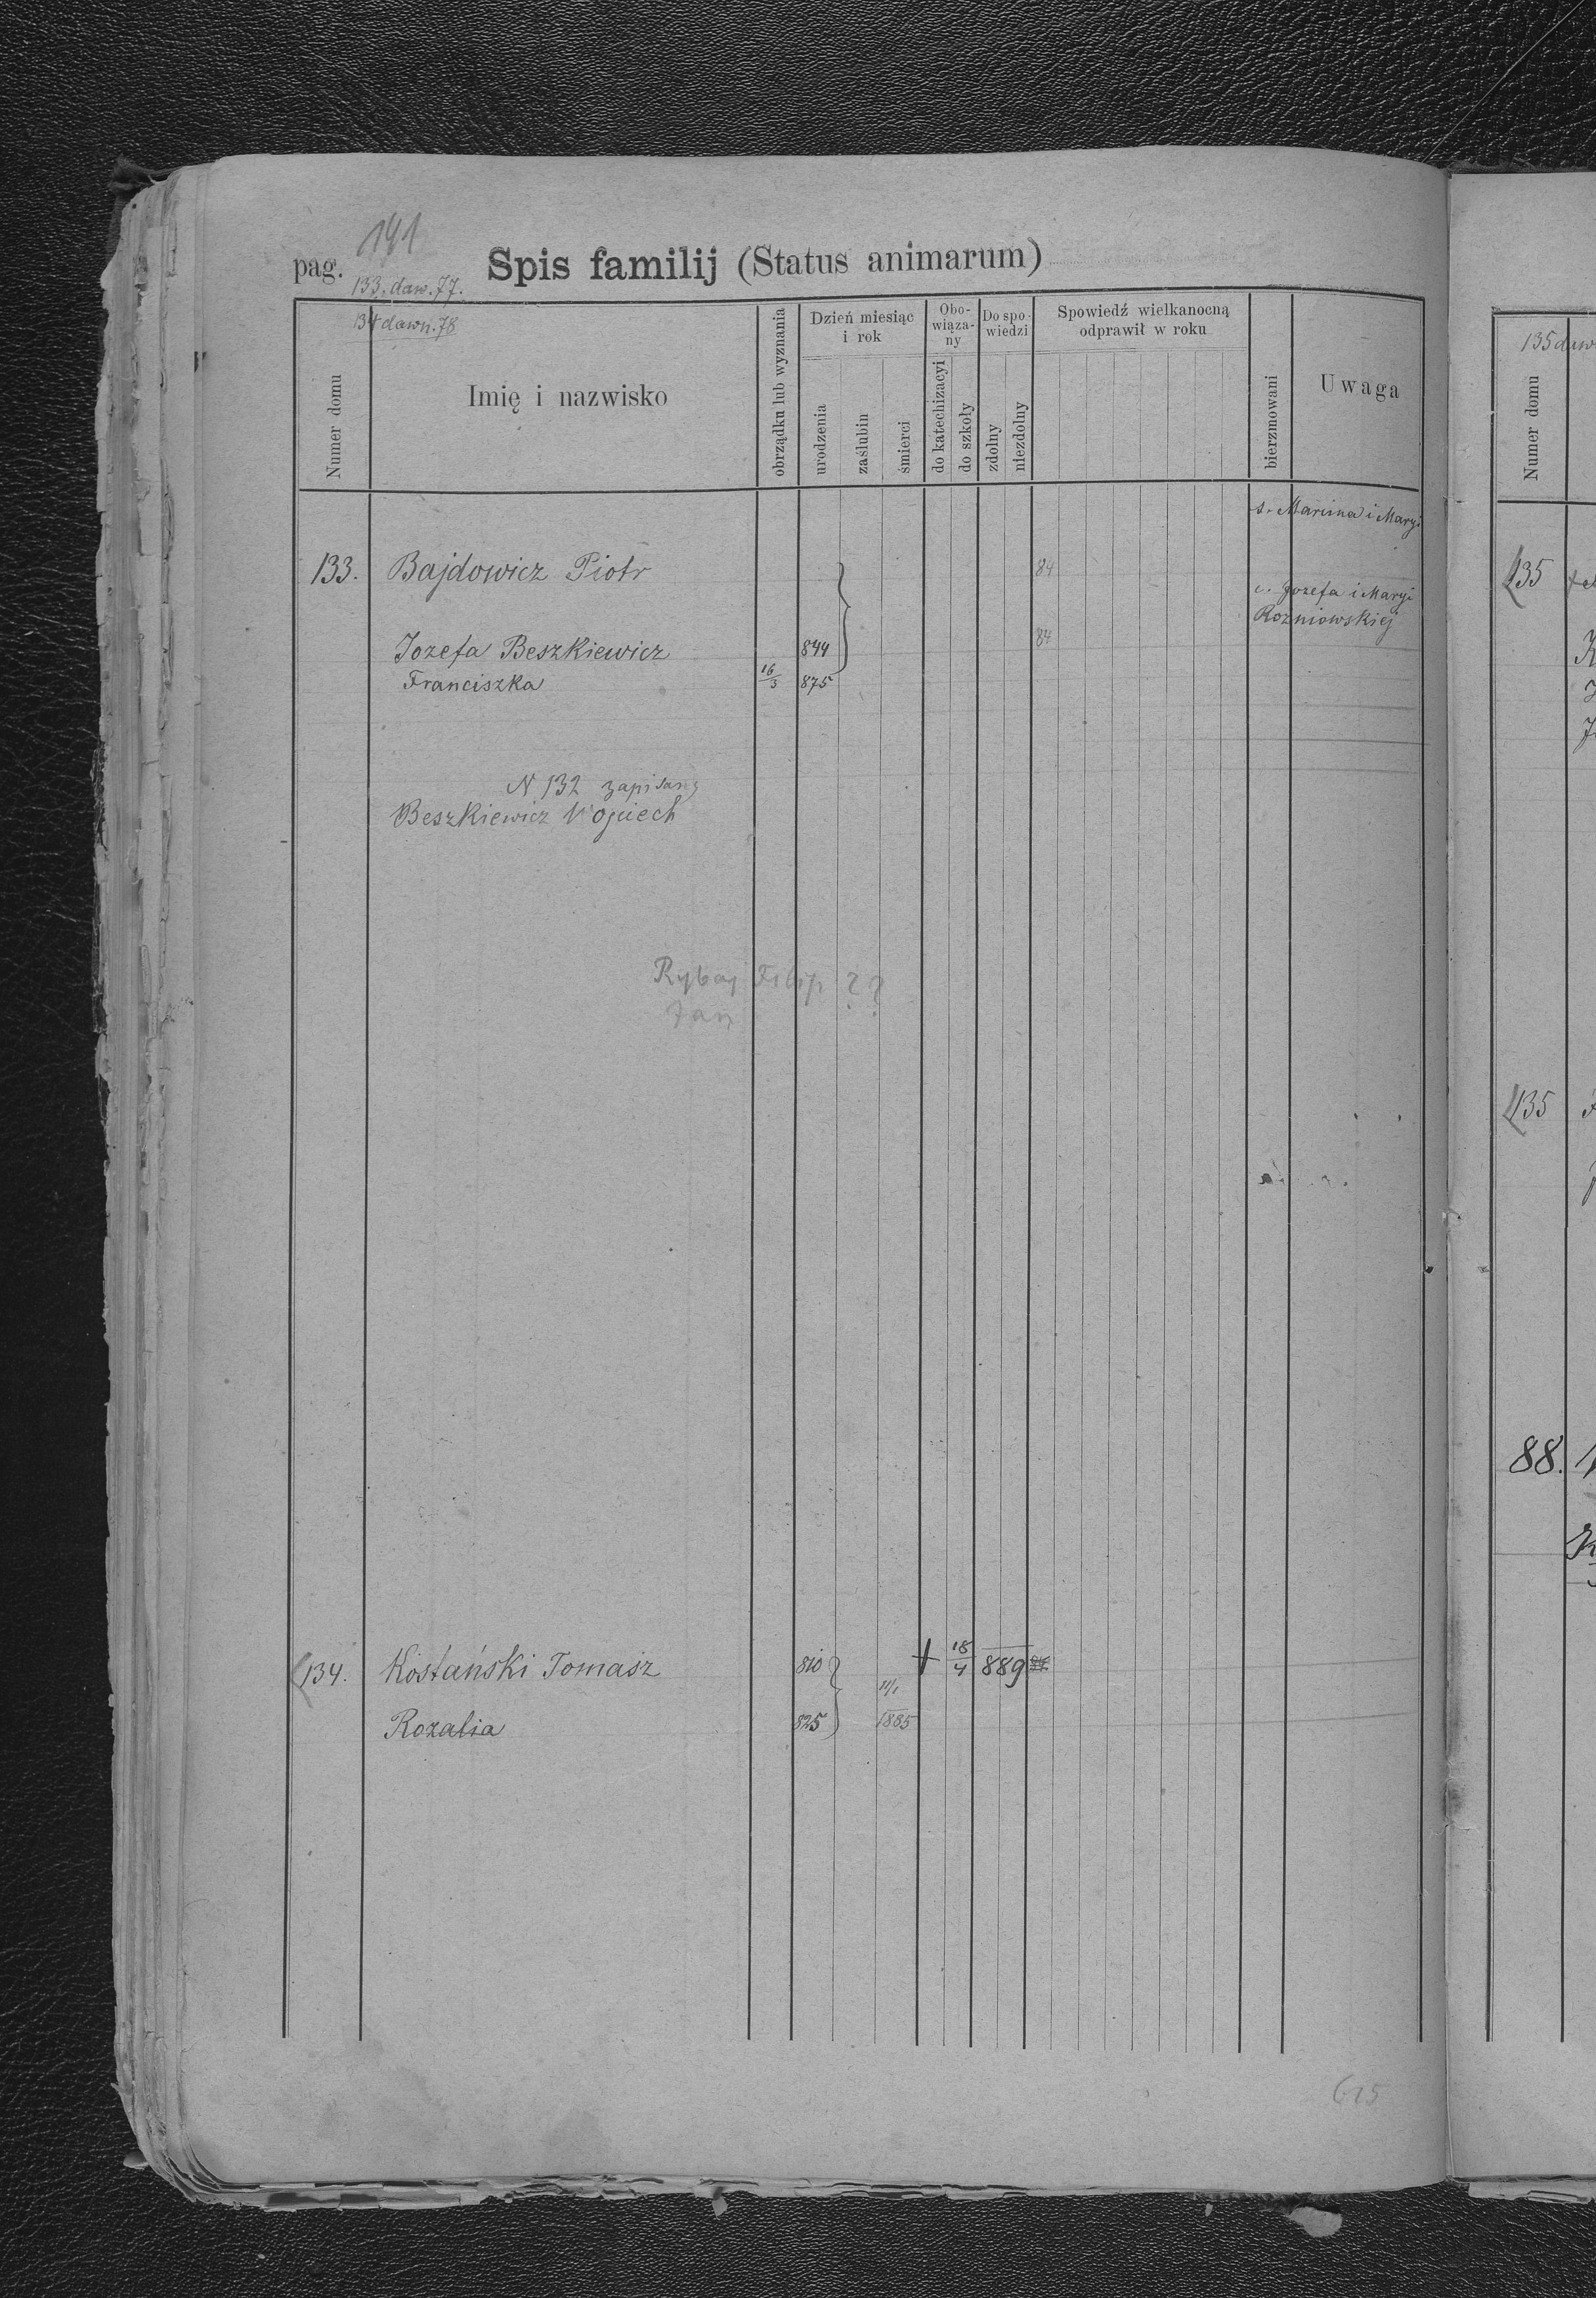 141
pag. Spis familij (Status animarum)
133. daw. 77.
134 dawn. 78
Numer domu
Imię i nazwisko
obrządku lub wyznania
Dzień miesiąc i rok
urodzenia
zaślubin
śmierci
Obo-wiąza-ny
do katechizacyi
do szkoły
Do spo-wiedzi
zdolny
niezdolny
Spowiedź wielkanocną odprawił w roku
bierzmowani
Uwaga
s. Marcina i Maryi
133. Bajdowicz Piotr 84
c. Jozefa i Maryi
Rozniowskiej
Jozefa Beszkiewicz 844 84
Franciszka 16/3 875
N 132 zapisany
Beszkiewicz Wojciech
Rybay Filip ??
Jan
134. Kostański Tomasz 810 + 18/4 889
11/1
Rozalia 825 1885
615
135 daw
Numer domu
135
135
88.